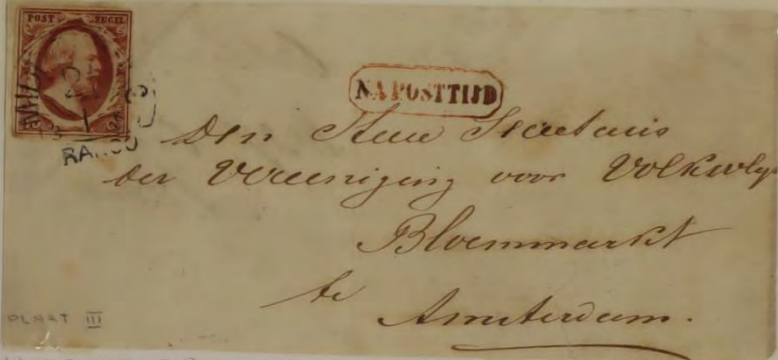 POST ZEGEL
NA POSTTIJD
Den Heere Secretaris
der Vereeniging voor Volksvlyt
Bloemmarkt
te
Amsterdam.
PLAAT III